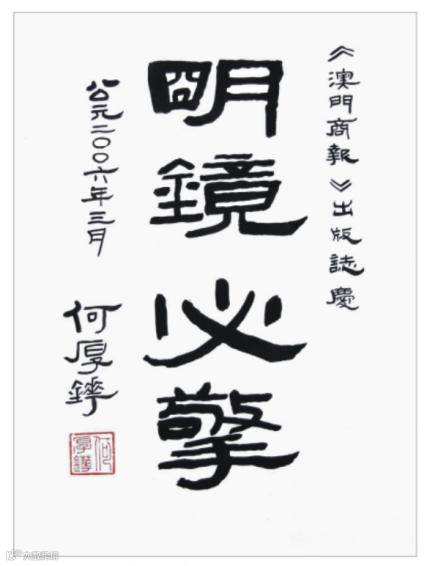 《澳門商報》出版誌慶
明鏡必擎
公元二〇〇六年三月
何厚鏵
何厚鏵